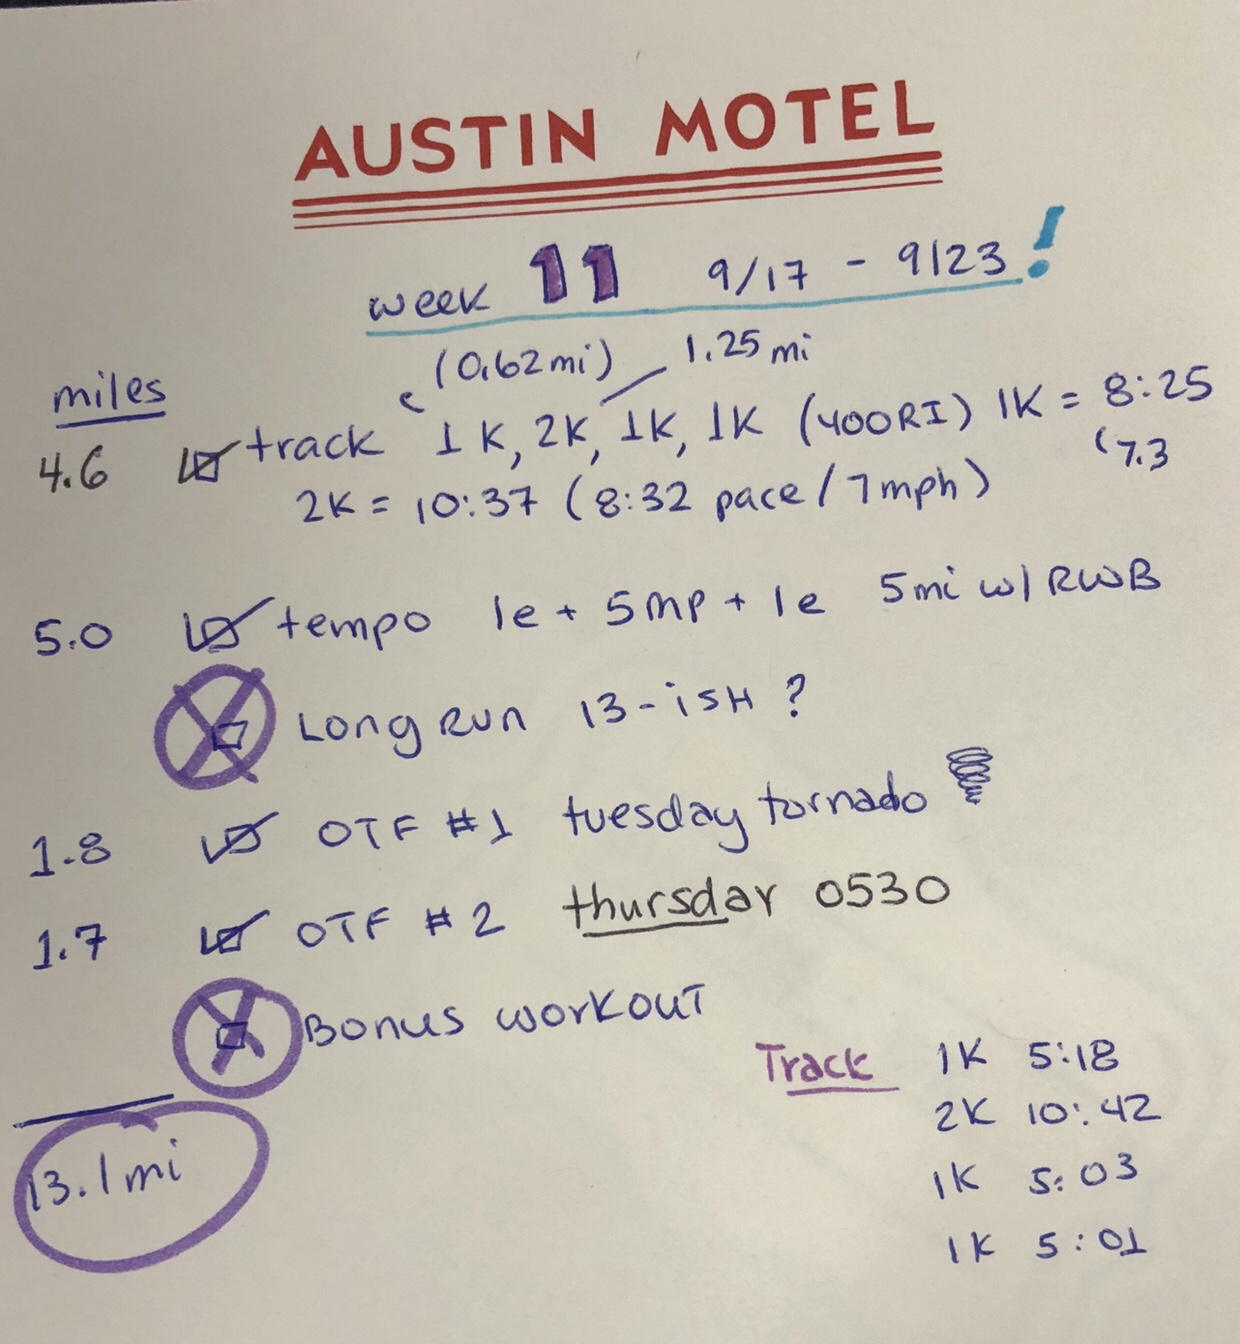 AUSTIN MOTEL
week 11 9/17 - 9/23!
(0.62mi) 1.25 mi
miles
4.6 track 1K, 2K, 1K, 1K (400RI) 1K = 8:25
(7.3
2K = 10:37 (8:32 pace / 7mph)
5.0 tempo 1e + 5mp + 1e 5mi w/ RWB
Long Run 13-ish?
1.8 OTF #1 tuesday tornado
1.7 OTF #2 thursday 0530
Bonus workout
Track 1K 5:18
2K 10:42
1K 5:03
1K 5:01
13.1mi